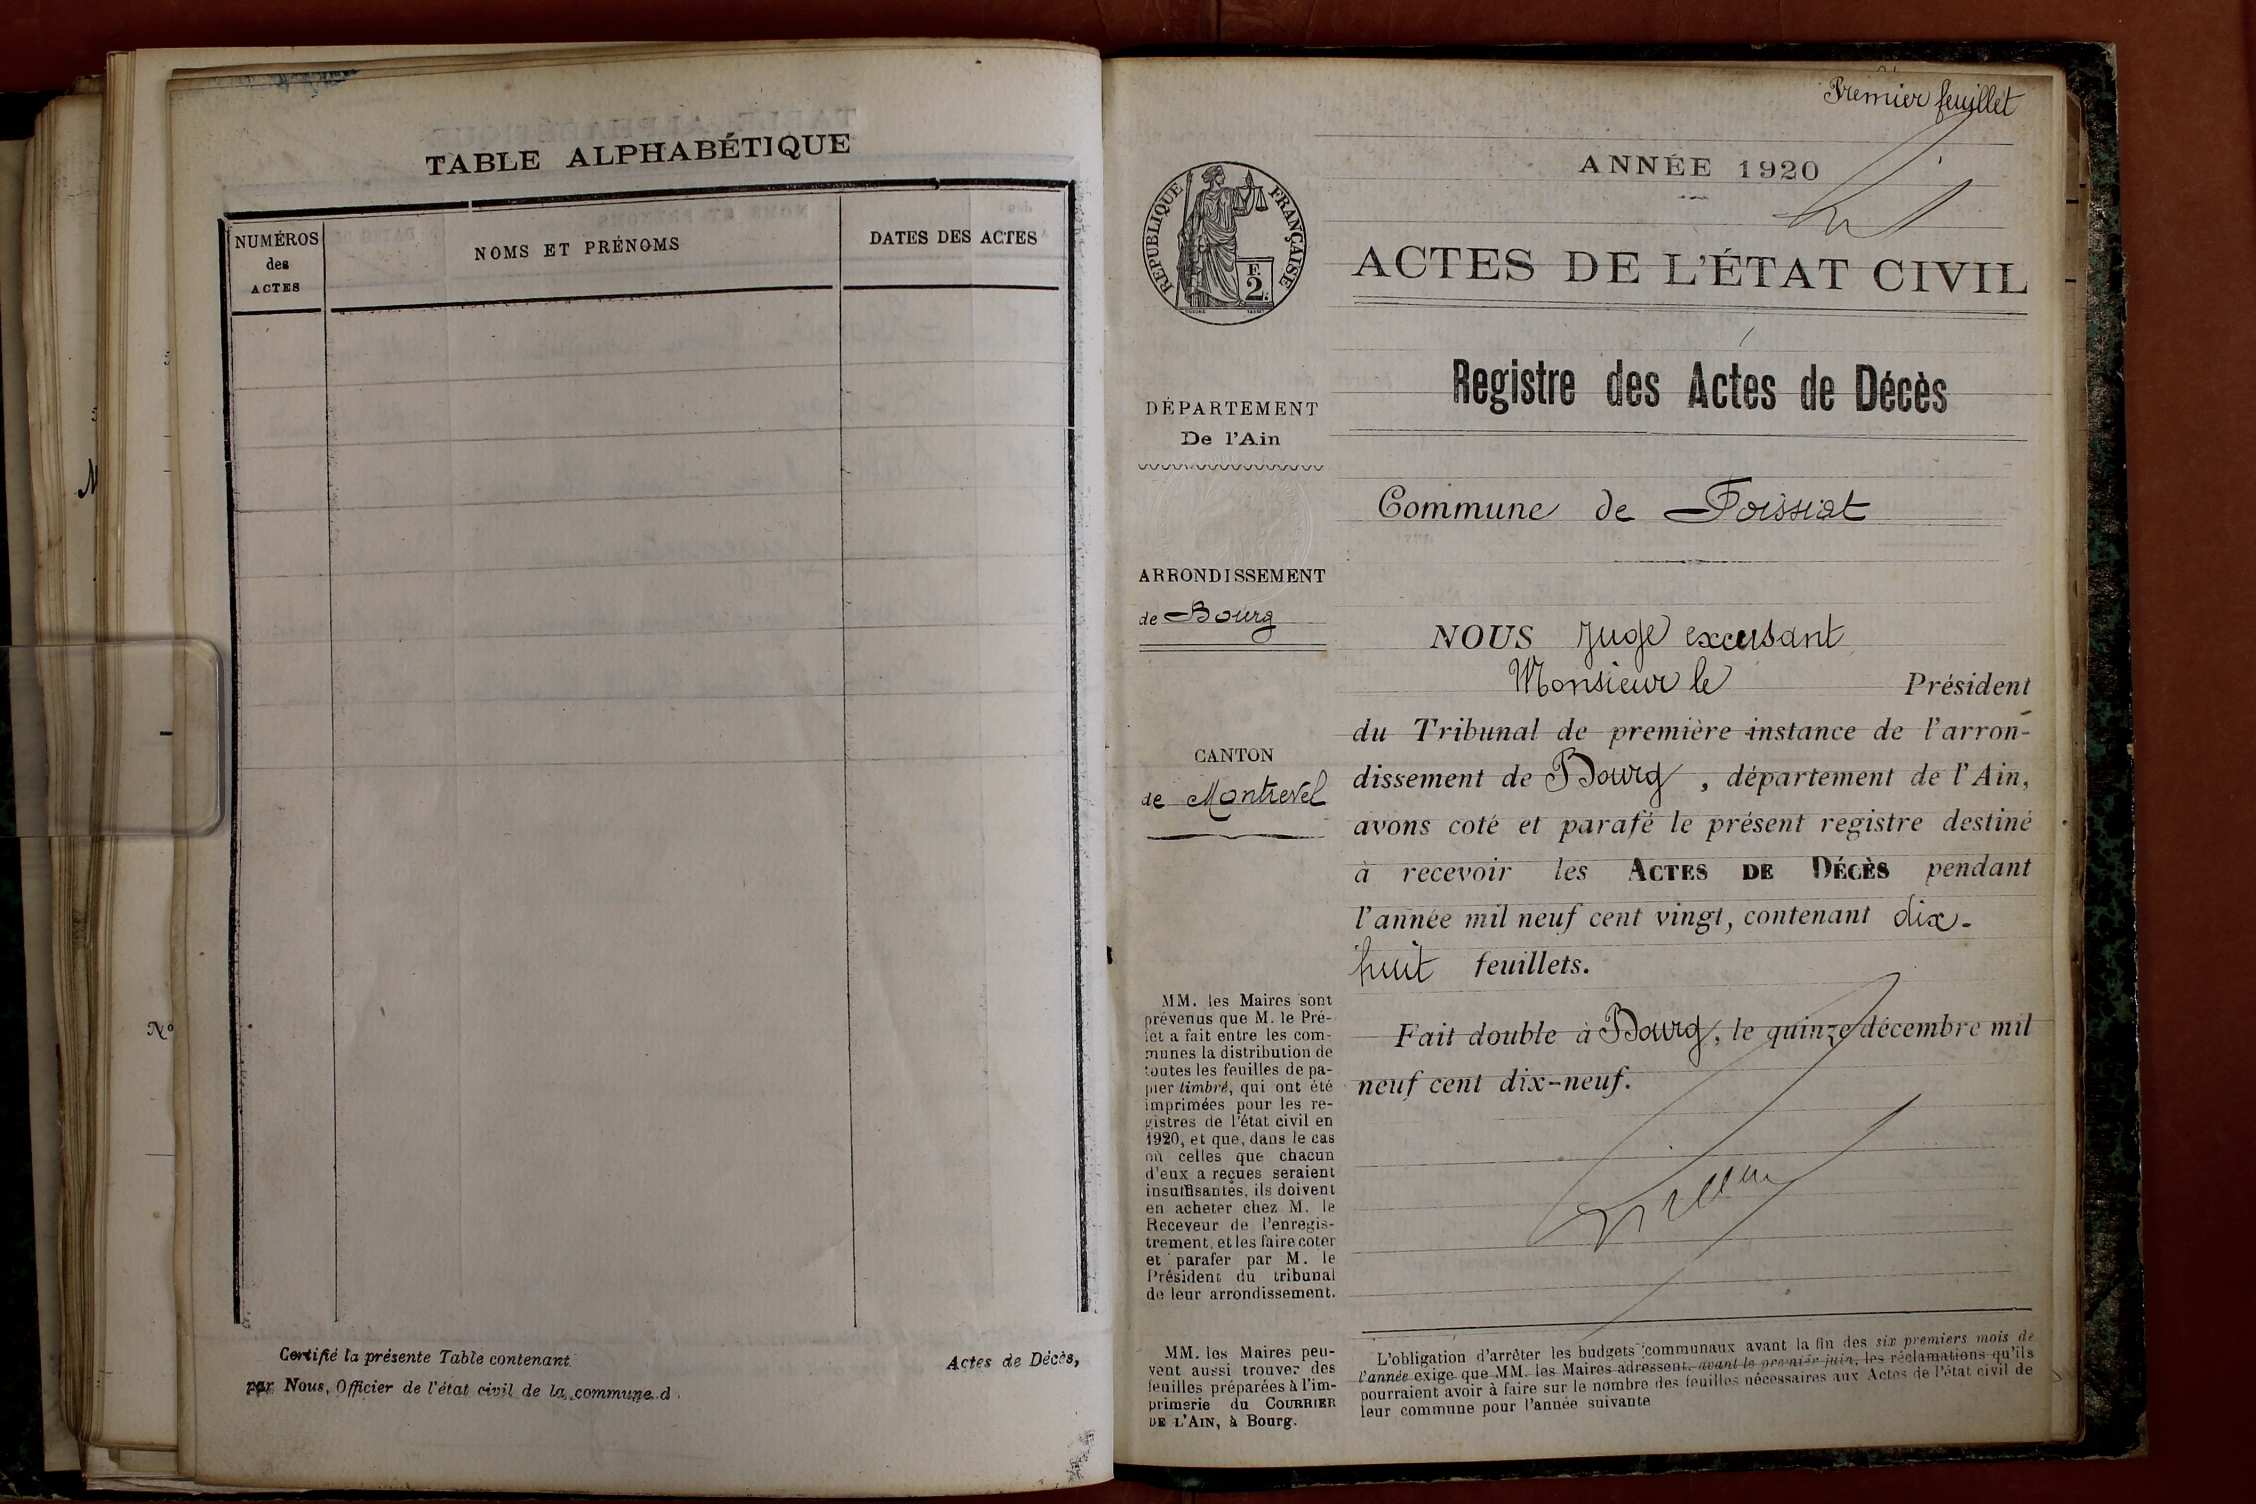 TABLE ALPHABÉTIQUE
NUMÉROS
des
ACTES
NOMS ET PRÉNOMS
DATES DES ACTES
Certifié la présente Table contenant
Actes de Décès,
par Nous, Officier de l'état civil de la commune d
Premier feuillet
ANNÉE 1920
RÉPUBLIQUE FRANÇAISE
F.
2.
ACTES DE L'ÉTAT CIVIL
Registre des Actes de Décès
DÉPARTEMENT
De l'Ain
Commune de Foissiat
ARRONDISSEMENT
de Bourg
CANTON
de Montrevel
NOUS Juge excusant
Monsieur le Président
du Tribunal de première instance de l'arron-
dissement de Bourg, département de l'Ain,
avons coté et parafé le présent registre destiné
à recevoir les ACTES DE DÉCÈS pendant
l'année mil neuf cent vingt, contenant dix-
huit feuillets.
Fait double à Bourg, le quinze décembre mil
neuf cent dix-neuf.
MM. les Maires sont
prévenus que M. le Pré-
fet a fait entre les com-
munes la distribution de
toutes les feuilles de pa-
pier timbré, qui ont été
imprimées pour les re-
gistres de l'état civil en
1920, et que, dans le cas
où celles que chacun
d'eux a reçues seraient
insuffisantes, ils doivent
en acheter chez M. le
Receveur de l'enregis-
trement, et les faire coter
et parafer par M. le
Président du tribunal
de leur arrondissement.
MM. les Maires peu-
vent aussi trouver des
feuilles préparées à l'im-
primerie du COURRIER
DE L'AIN, à Bourg.
L'obligation d'arrêter les budgets communaux avant la fin des six premiers mois de
l'année exige que MM. les Maires adressent, avant le premier juin, les réclamations qu'ils
pourraient avoir à faire sur le nombre des feuilles nécessaires aux Actes de l'état civil de
leur commune pour l'année suivante